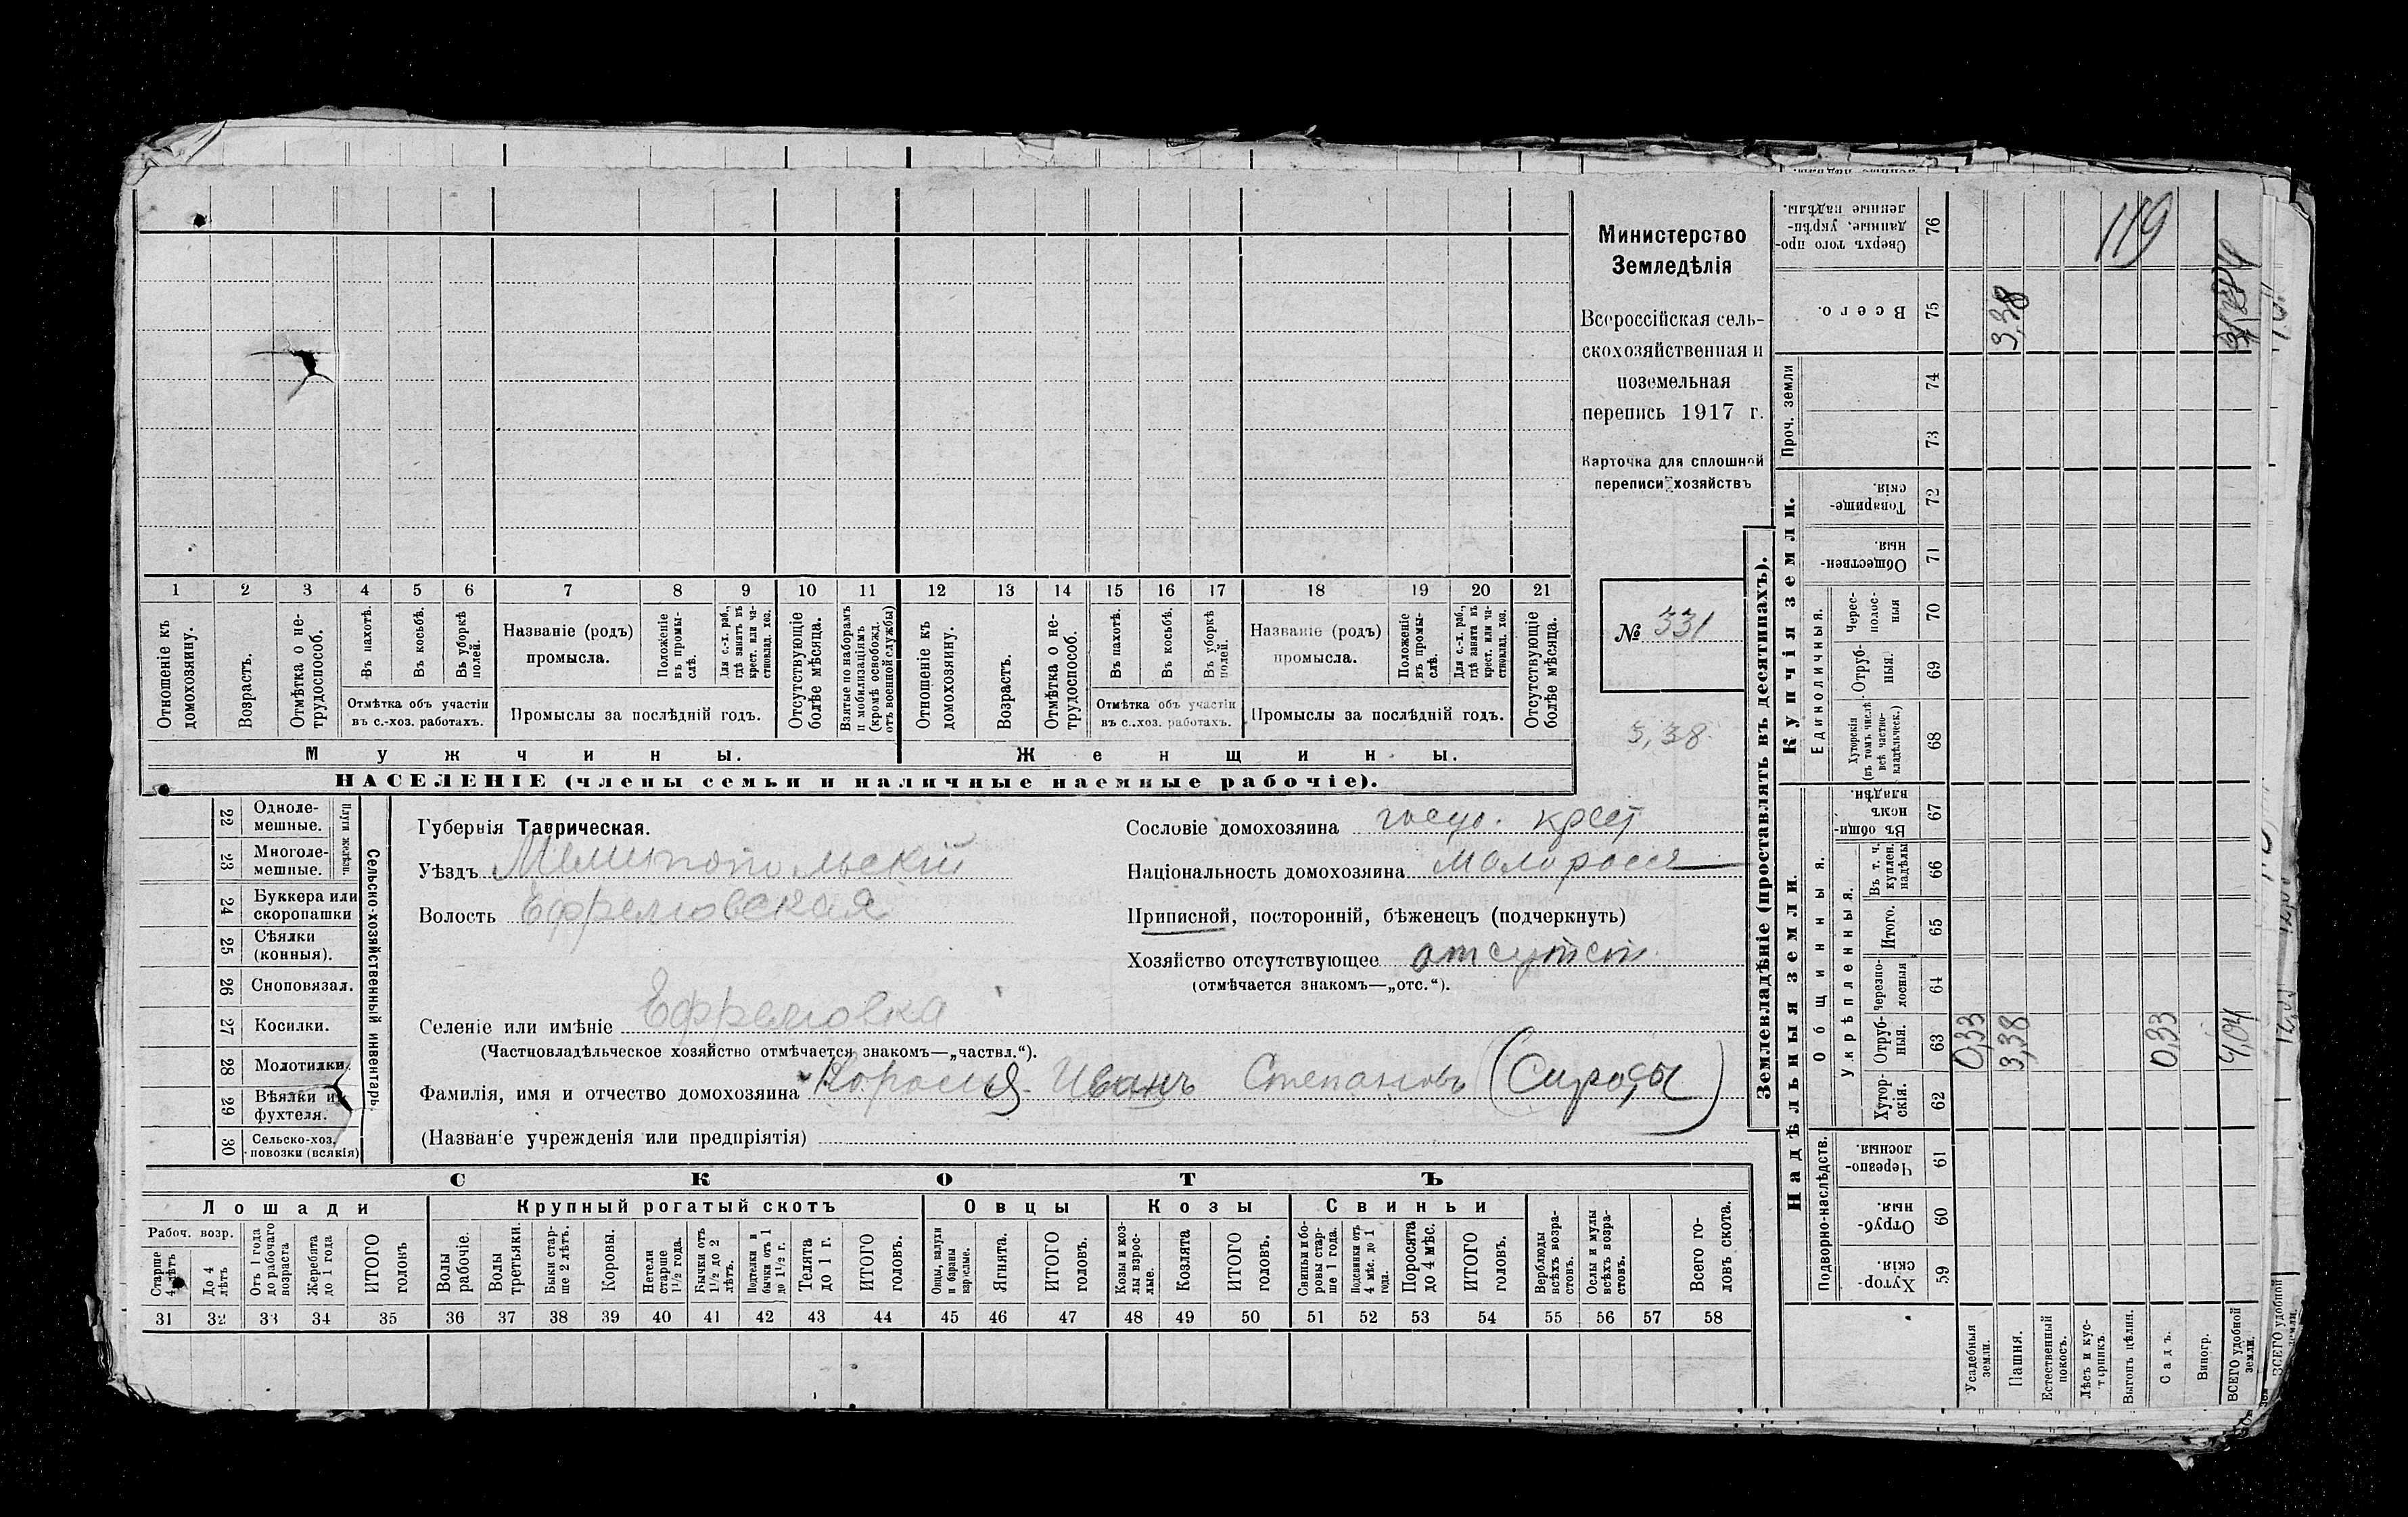 1 2 3 4 5 6 7 8 9 10 11 12 13 14 15 16 17 18 19 20 21
Отношеніе къ домохозяину.
Возрастъ.
Отмѣтка о не-
трудоспособ.
Въ пахотѣ.
Въ косьбѣ.
Въ уборкѣ
полей.
Отмѣтка объ участіи
въ с.-хоз. работахъ.
Названіе (родъ)
промысла.
Положеніе
въ промы-
слѣ.
Для с.-х. раб.,
гдѣ занятъ въ
крест. или ча-
стновлад. хоз.
Промыслы за послѣдній годъ.
Отсутствующіе
болѣе мѣсяца.
Взятые по наборамъ
и мобилизаціямъ
(кромѣ освобожд.
отъ военной службы)
Отношеніе къ
домохозяину.
Возрастъ.
Отмѣтка о не-
трудоспособ.
Въ пахотѣ.
Въ косьбѣ.
Въ уборкѣ
полей.
Отмѣтка объ участіи
въ с.-хоз. работахъ.
Названіе (родъ)
промысла.
Положеніе
въ промы-
слѣ.
Для с.-х. раб.,
гдѣ занята въ
крест. или ча-
стновлад. хоз.
Промыслы за послѣдній годъ.
Отсутствующіе
болѣе мѣсяца.
Мужчины. Женщины.
НАСЕЛЕНІЕ (члены семьи и наличные наемные рабочіе).
Министерство
Земледѣлія
Всероссійская сель-
скохозяйственная и
поземельная
перепись 1917 г.
Карточка для сплошной
переписи хозяйствъ
№ 331
3,38
22 Одноле-
мешные.
23 Многоле-
мешные.
Плуги желѣзн.
24 Буккера или
скоропашки
25 Сѣялки
(конныя).
26 Сноповязал.
27 Косилки.
28 Молотилки.
29 Вѣялки и
фухтеля.
30 Сельско-хоз.
повозки (всякія)
Сельско-хозяйственный инвентарь.
Губернія Таврическая.
Уѣздъ Мелитопольскій
Волость Ефремовская
Селеніе или имѣніе Ефремовка
(Частновладѣльческое хозяйство отмѣчается знакомъ—„частвл.“).
Фамилія, имя и отчество домохозяина Короля Иванъ Степановъ (Сироты)
(Названіе учрежденія или предпріятія)
Сословіе домохозяина госуд. крест
Національность домохозяина малоросся
Приписной, посторонній, бѣженецъ (подчеркнуть)
Хозяйство отсутствующее отсутст.
(отмѣчается знакомъ—„отс.“).
СКОТЪ
Лошади Крупный рогатый скотъ Овцы Козы Свиньи
Рабоч. возр.
Старше
4 лѣтъ
До 4
лѣтъ
Отъ 1 года
до рабочаго
возраста
Жеребята
до 1 года
ИТОГО
головъ
Волы
рабочіе.
Волы
третьяки.
Быки стар-
ше 2 лѣтъ.
Коровы.
Нетели
старше
1½ года.
Бычки отъ
1½ до 2
лѣтъ.
Подтелки и
бычки отъ 1
до 1½ г.
Телята
до 1 г.
ИТОГО
головъ.
Овцы, валухи
и бараны
взрослые.
Ягнята.
ИТОГО
головъ.
Козы и коз-
лы взрос-
лые.
Козлята
ИТОГО
головъ.
Свиньи и бо-
ровы стар-
ше 1 года.
Подсвинки отъ
4 мѣс. до 1
года.
Поросята
до 4 мѣс.
ИТОГО
головъ.
Верблюды
всѣхъ возра-
стовъ.
Ослы и мулы
всѣхъ возра-
стовъ.
Всего го-
ловъ скота.
31 32 33 34 35 36 37 38 39 40 41 42 43 44 45 46 47 48 49 50 51 52 53 54 55 56 57 58
Землевладѣніе (проставлять въ десятинахъ).
Купчія земли.
Надѣльныя земли.
Сверхъ того про-
данные, укрѣп-
ленные надѣлы.
76
119
Всего.
75
3,38
Проч. земли
74
73
Товарище-
скія.
72
Обществен-
ныя.
71
Единоличныя.
Черес-
полос-
ныя
70
Отруб-
ныя.
69
Хуторскія
(въ томъ числѣ
всѣ частно-
владѣльческ.)
68
Общинныя.
Въ общин-
номъ
владѣн.
67
Укрѣпленныя.
Въ т. ч.
куплен.
надѣлы
66
Итого.
65
Черезпо-
лосныя
64
Отруб-
ныя.
63
0,33
3,38
0,33
4,04
Хутор-
скія.
62
Подворно-наслѣдств.
Черезпо-
лосныя
61
Отруб-
ныя.
60
Хутор-
скія.
59
Усадебныя
земли.
Пашня.
Естественный
покосъ.
Лѣсъ и кус-
тарникъ
Выгонъ цѣлин.
Садъ.
Виногр.
ВСЕГО удобной
земли.
ВСЕГО удобной
земли.